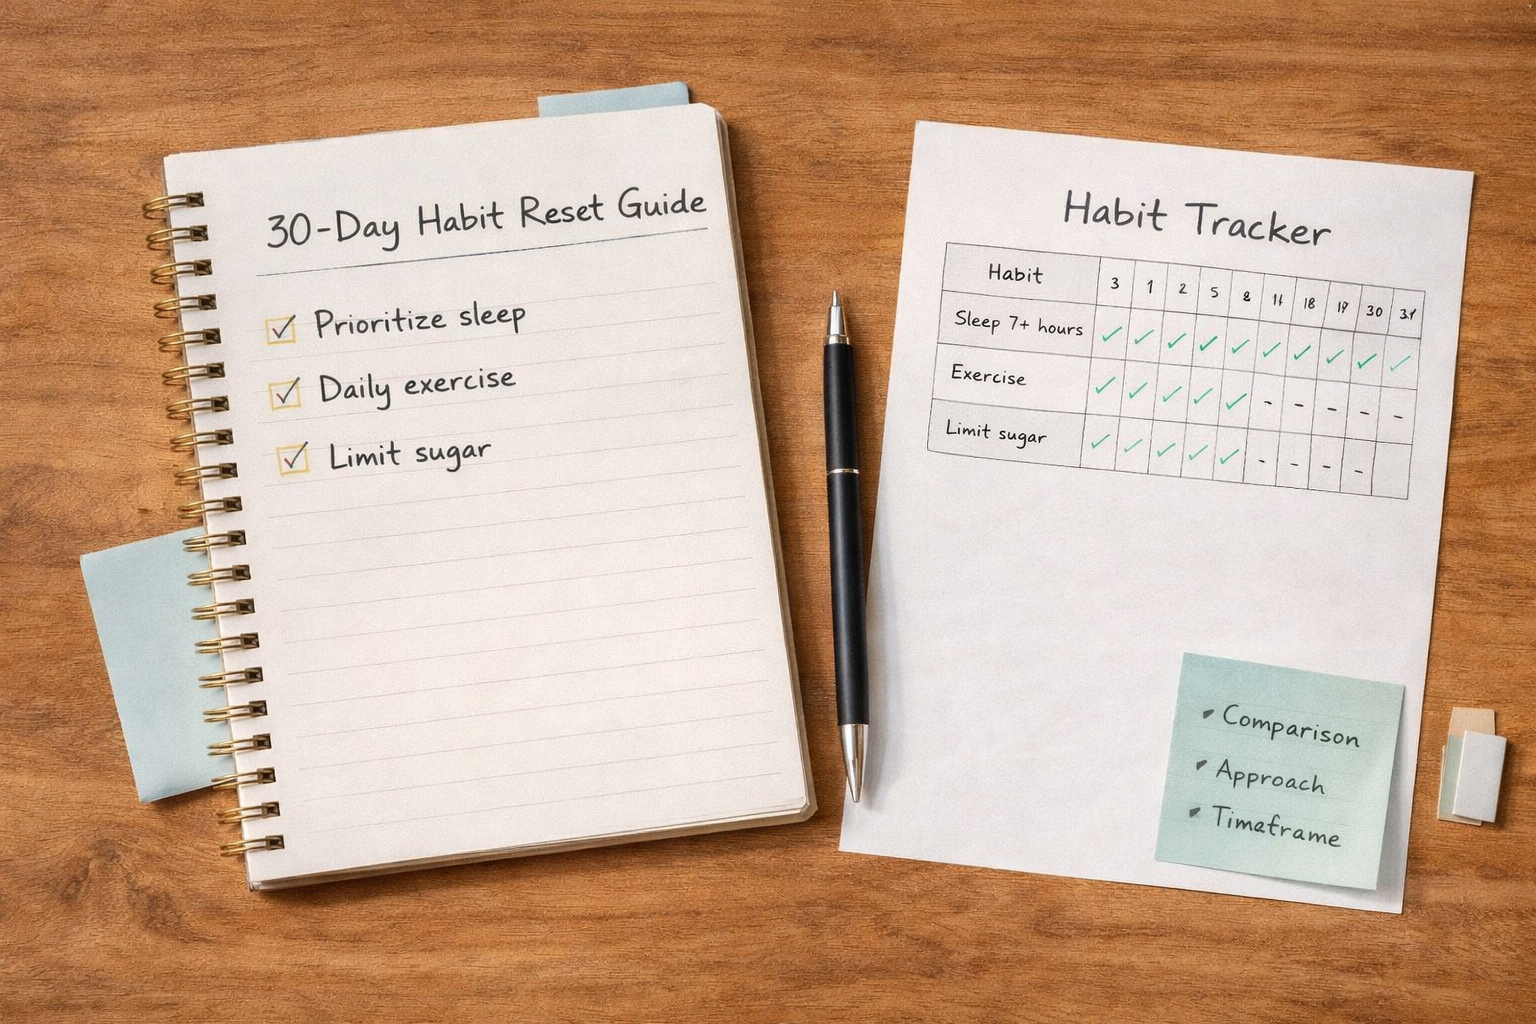 30-Day Habit Reset Guide
Prioritize sleep
Daily exercise
Limit sugar
Habit Tracker
Habit 3 1 2 5 8 11 18 19 30 31
Sleep 7+ hours ✓ ✓ ✓ ✓ ✓ ✓ ✓ ✓ ✓ ✓
Exercise ✓ ✓ ✓ ✓ ✓ - - - - -
Limit sugar ✓ ✓ ✓ ✓ ✓ - - - -
Comparison
Approach
Timaframe